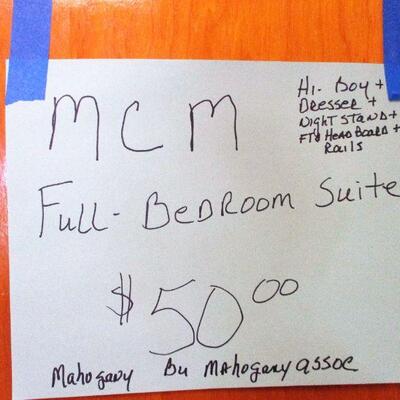 MCM
Hi-Boy +
Dresser +
Night Stand +
FT & Head Board +
Rails
Full-Bedroom Suite
$50.00
Mahogany By Mahogany assoc